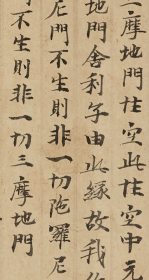 摩地門性空此性空中元
地門舍利子由此緣故我作
尼門不生則非一切陁羅尼
門不生則非一切三摩地門